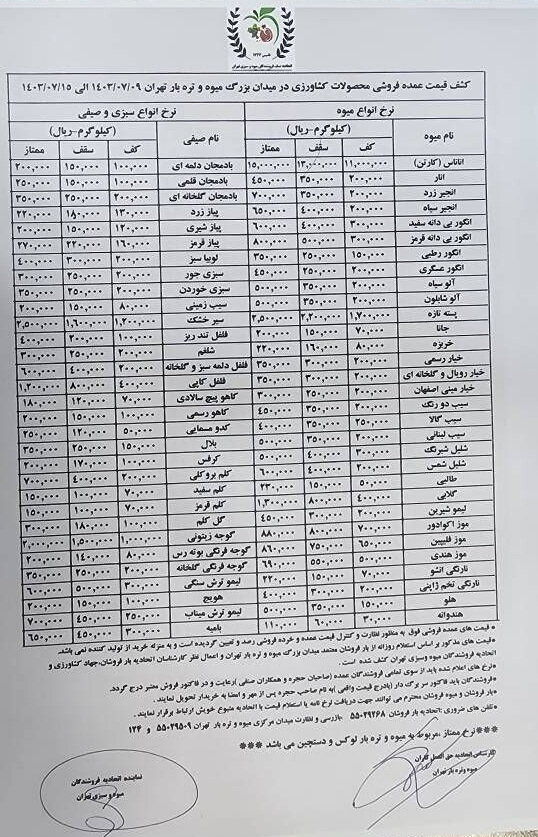 کشف قیمت عمده فروشی محصولات کشاورزی در میدان بزرگ میوه و تره بار تهران ۱۴۰۳/۰۷/۰۹ الی ۱۴۰۳/۰۷/۱۵
نرخ انواع میوه نرخ انواع سبزی و صیفی
نام میوه (کیلوگرم-ریال) نام صیفی (کیلوگرم-ریال)
کف سقف ممتاز کف سقف ممتاز
آناناس (کارتن) ۱۱,۰۰۰,۰۰۰ ۱۳,۰۰۰,۰۰۰ ۱۵,۰۰۰,۰۰۰ بادمجان دلمه ای ۱۰۰,۰۰۰ ۱۵۰,۰۰۰ ۲۰۰,۰۰۰
انار ۲۰۰,۰۰۰ ۳۵۰,۰۰۰ ۴۵۰,۰۰۰ بادمجان قلمی ۱۰۰,۰۰۰ ۱۵۰,۰۰۰ ۲۵۰,۰۰۰
انجیر زرد ۲۰۰,۰۰۰ ۳۵۰,۰۰۰ ۷۰۰,۰۰۰ بادمجان گلخانه ای ۲۰۰,۰۰۰ ۲۵۰,۰۰۰ ۳۵۰,۰۰۰
انجیر سیاه ۲۰۰,۰۰۰ ۴۰۰,۰۰۰ ۶۵۰,۰۰۰ پیاز زرد ۱۳۰,۰۰۰ ۱۸۰,۰۰۰ ۲۲۰,۰۰۰
انگور بی دانه سفید ۳۰۰,۰۰۰ ۴۰۰,۰۰۰ ۶۰۰,۰۰۰ پیاز شیری ۱۲۰,۰۰۰ ۱۵۰,۰۰۰ ۲۰۰,۰۰۰
انگور بی دانه قرمز ۳۰۰,۰۰۰ ۵۰۰,۰۰۰ ۸۰۰,۰۰۰ پیاز قرمز ۱۶۰,۰۰۰ ۲۲۰,۰۰۰ ۲۷۰,۰۰۰
انگور رطبی ۱۵۰,۰۰۰ ۲۵۰,۰۰۰ ۳۵۰,۰۰۰ لوبیا سبز ۲۰۰,۰۰۰ ۳۰۰,۰۰۰ ۴۰۰,۰۰۰
انگور عسگری ۲۰۰,۰۰۰ ۲۵۰,۰۰۰ ۴۵۰,۰۰۰ سبزی جور ۲۰۰,۰۰۰ ۲۵۰,۰۰۰ ۳۰۰,۰۰۰
آلو سیاه ۲۰۰,۰۰۰ ۳۵۰,۰۰۰ ۵۰۰,۰۰۰ سبزی خوردن ۲۰۰,۰۰۰ ۲۵۰,۰۰۰ ۳۵۰,۰۰۰
آلو شابلون ۲۰۰,۰۰۰ ۳۵۰,۰۰۰ ۵۰۰,۰۰۰ سیب زمینی ۸۰,۰۰۰ ۱۵۰,۰۰۰ ۲۰۰,۰۰۰
پسته تازه ۱,۷۰۰,۰۰۰ ۲,۲۰۰,۰۰۰ ۲,۵۰۰,۰۰۰ سیر خشک ۱,۲۰۰,۰۰۰ ۱,۶۰۰,۰۰۰ ۲,۵۰۰,۰۰۰
جانا ۷۰,۰۰۰ ۱۵۰,۰۰۰ ۲۰۰,۰۰۰ فلفل تند ریز ۱۰۰,۰۰۰ ۲۰۰,۰۰۰ ۴۰۰,۰۰۰
خربزه ۸۰,۰۰۰ ۱۶۰,۰۰۰ ۲۲۰,۰۰۰ شلغم ۲۰۰,۰۰۰ ۲۵۰,۰۰۰ ۳۰۰,۰۰۰
خیار رسمی ۲۰۰,۰۰۰ ۳۰۰,۰۰۰ ۳۵۰,۰۰۰ فلفل دلمه سبز و گلخانه ۲۰۰,۰۰۰ ۴۰۰,۰۰۰ ۶۰۰,۰۰۰
خیار رویال و گلخانه ای ۲۰۰,۰۰۰ ۳۰۰,۰۰۰ ۳۵۰,۰۰۰ فلفل کاپی ۴۰۰,۰۰۰ ۸۰۰,۰۰۰ ۱,۲۰۰,۰۰۰
خیار مینی اصفهان ۲۰۰,۰۰۰ ۲۵۰,۰۰۰ ۳۰۰,۰۰۰ کاهو پیچ سالادی ۷۰,۰۰۰ ۱۲۰,۰۰۰ ۱۸۰,۰۰۰
سیب دو رنگ ۲۰۰,۰۰۰ ۳۵۰,۰۰۰ ۴۵۰,۰۰۰ کاهو رسمی ۱۰۰,۰۰۰ ۱۵۰,۰۰۰ ۲۰۰,۰۰۰
سیب گالا ۲۵۰,۰۰۰ ۳۵۰,۰۰۰ ۴۰۰,۰۰۰ کدو مسمایی ۵۰,۰۰۰ ۱۲۰,۰۰۰ ۲۵۰,۰۰۰
سیب لبنانی ۲۰۰,۰۰۰ ۳۵۰,۰۰۰ ۵۰۰,۰۰۰ بلال ۱۵۰,۰۰۰ ۲۵۰,۰۰۰ ۳۵۰,۰۰۰
شلیل شبرنگ ۳۰۰,۰۰۰ ۴۰۰,۰۰۰ ۵۰۰,۰۰۰ کرفس ۱۰۰,۰۰۰ ۱۷۰,۰۰۰ ۲۰۰,۰۰۰
شلیل شمس ۲۰۰,۰۰۰ ۴۰۰,۰۰۰ ۶۰۰,۰۰۰ کلم بروکلی ۲۰۰,۰۰۰ ۴۰۰,۰۰۰ ۷۰۰,۰۰۰
طالبی ۵۰,۰۰۰ ۱۵۰,۰۰۰ ۲۳۰,۰۰۰ کلم سفید ۷۰,۰۰۰ ۱۰۰,۰۰۰ ۱۵۰,۰۰۰
گلابی ۴۰۰,۰۰۰ ۸۰۰,۰۰۰ ۱,۳۰۰,۰۰۰ کلم قرمز ۷۰,۰۰۰ ۱۰۰,۰۰۰ ۱۵۰,۰۰۰
لیمو شیرین ۲۰۰,۰۰۰ ۳۰۰,۰۰۰ ۴۵۰,۰۰۰ گل کلم ۱۰۰,۰۰۰ ۱۸۰,۰۰۰ ۳۰۰,۰۰۰
موز اکوادور ۷۰۰,۰۰۰ ۸۰۰,۰۰۰ ۸۸۰,۰۰۰ گوجه زیتونی ۱,۰۰۰,۰۰۰ ۱,۵۰۰,۰۰۰ ۲,۰۰۰,۰۰۰
موز فلیپین ۶۵۰,۰۰۰ ۷۵۰,۰۰۰ ۸۶۰,۰۰۰ گوجه فرنگی بوته رس ۸۰,۰۰۰ ۱۴۰,۰۰۰ ۲۰۰,۰۰۰
موز هندی ۵۰۰,۰۰۰ ۵۵۰,۰۰۰ ۶۹۰,۰۰۰ گوجه فرنگی گلخانه ۲۰۰,۰۰۰ ۲۵۰,۰۰۰ ۳۵۰,۰۰۰
نارنگی انشو ۷۰,۰۰۰ ۱۵۰,۰۰۰ ۲۲۰,۰۰۰ لیمو ترش سنگی ۳۰۰,۰۰۰ ۵۰۰,۰۰۰ ۶۰۰,۰۰۰
نارنگی تخم ژاپنی ۲۰۰,۰۰۰ ۳۰۰,۰۰۰ ۴۰۰,۰۰۰ هویج ۱۰۰,۰۰۰ ۱۵۰,۰۰۰ ۲۰۰,۰۰۰
هلو ۱۵۰,۰۰۰ ۳۵۰,۰۰۰ ۵۰۰,۰۰۰ لیمو ترش میناب ۲۵۰,۰۰۰ ۴۵۰,۰۰۰ ۷۰۰,۰۰۰
هندوانه ۳۰,۰۰۰ ۶۰,۰۰۰ ۱۱۰,۰۰۰ بامیه ۳۰۰,۰۰۰ ۴۵۰,۰۰۰ ۶۵۰,۰۰۰
* قیمت های عمده فروشی فوق به منظور نظارت و کنترل قیمت عمده و خرده فروشی رصد و تعیین گردیده است و به منزله خرید از تولید کننده نمی باشد.
* قیمت های مذکور بر اساس استعلام روزانه از بار فروشان معتمد میدان بزرگ میوه و تره بار تهران و اعمال نظر کارشناسان اتحادیه بار فروشان،جهاد کشاورزی و
اتحادیه فروشندگان میوه وسبزی تهران کشف شده است.
* نرخ های اعلام شده باید از سوی تمامی فروشندگان عمده (صاحبان حجره و همکاران صنفی )رعایت و در فاکتور فروش معتبر درج گردد.
* فروشندگان باید فاکتور سر برگ دار (بادرج قیمت واقعی )به نام صاحب حجره پس از مهر و امضا به خریدار تحویل نمایند.
* بار فروشان و میوه فروشان محترم می توانند جهت دریافت نرخ نامه یا استعلام قیمت با اتحادیه متبوع خویش ارتباط برقرار نمایند.
* تلفن های ضروری :اتحادیه بار فروشان ۵۵۰۲۹۲۶۸ بازرسی و نظارت میدان مرکزی میوه و تره بار تهران ۵۵۰۲۹۵۰۹ و ۱۲۴
***نرخ ممتاز ،مربوط به میوه و تره بار لوکس و دستچین می باشد ***
کارشناس اتحادیه حق العمل کاران
میوه و تره بار تهران
نماینده اتحادیه فروشندگان
میوه و سبزی تهران